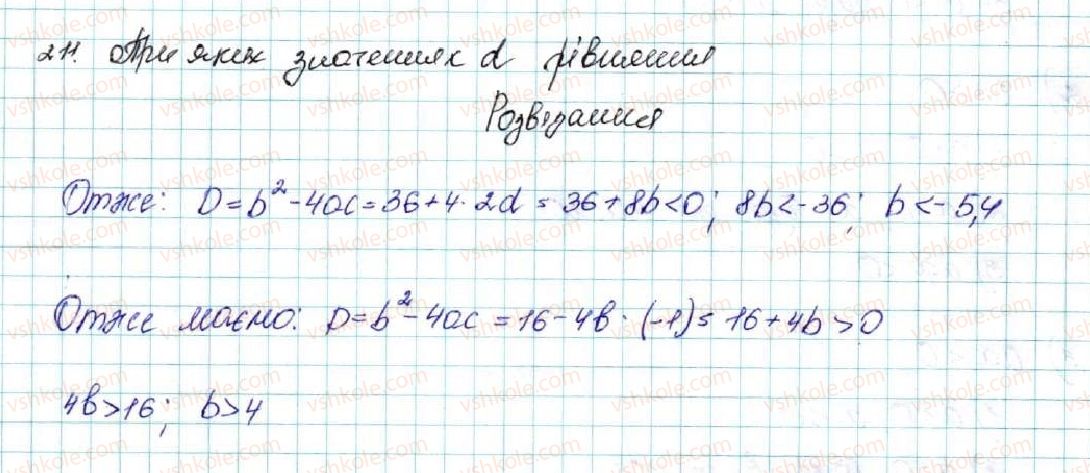 211. При яких значеннях d рівняння
Розв'язання
Отже: D = b² - 4ac = 36 + 4 · 2d = 36 + 8b < 0; 8b < -36; b < -5,4
Отже маємо: D = b² - 4ac = 16 - 4b · (-1) = 16 + 4b > 0
4b > 16; b > 4